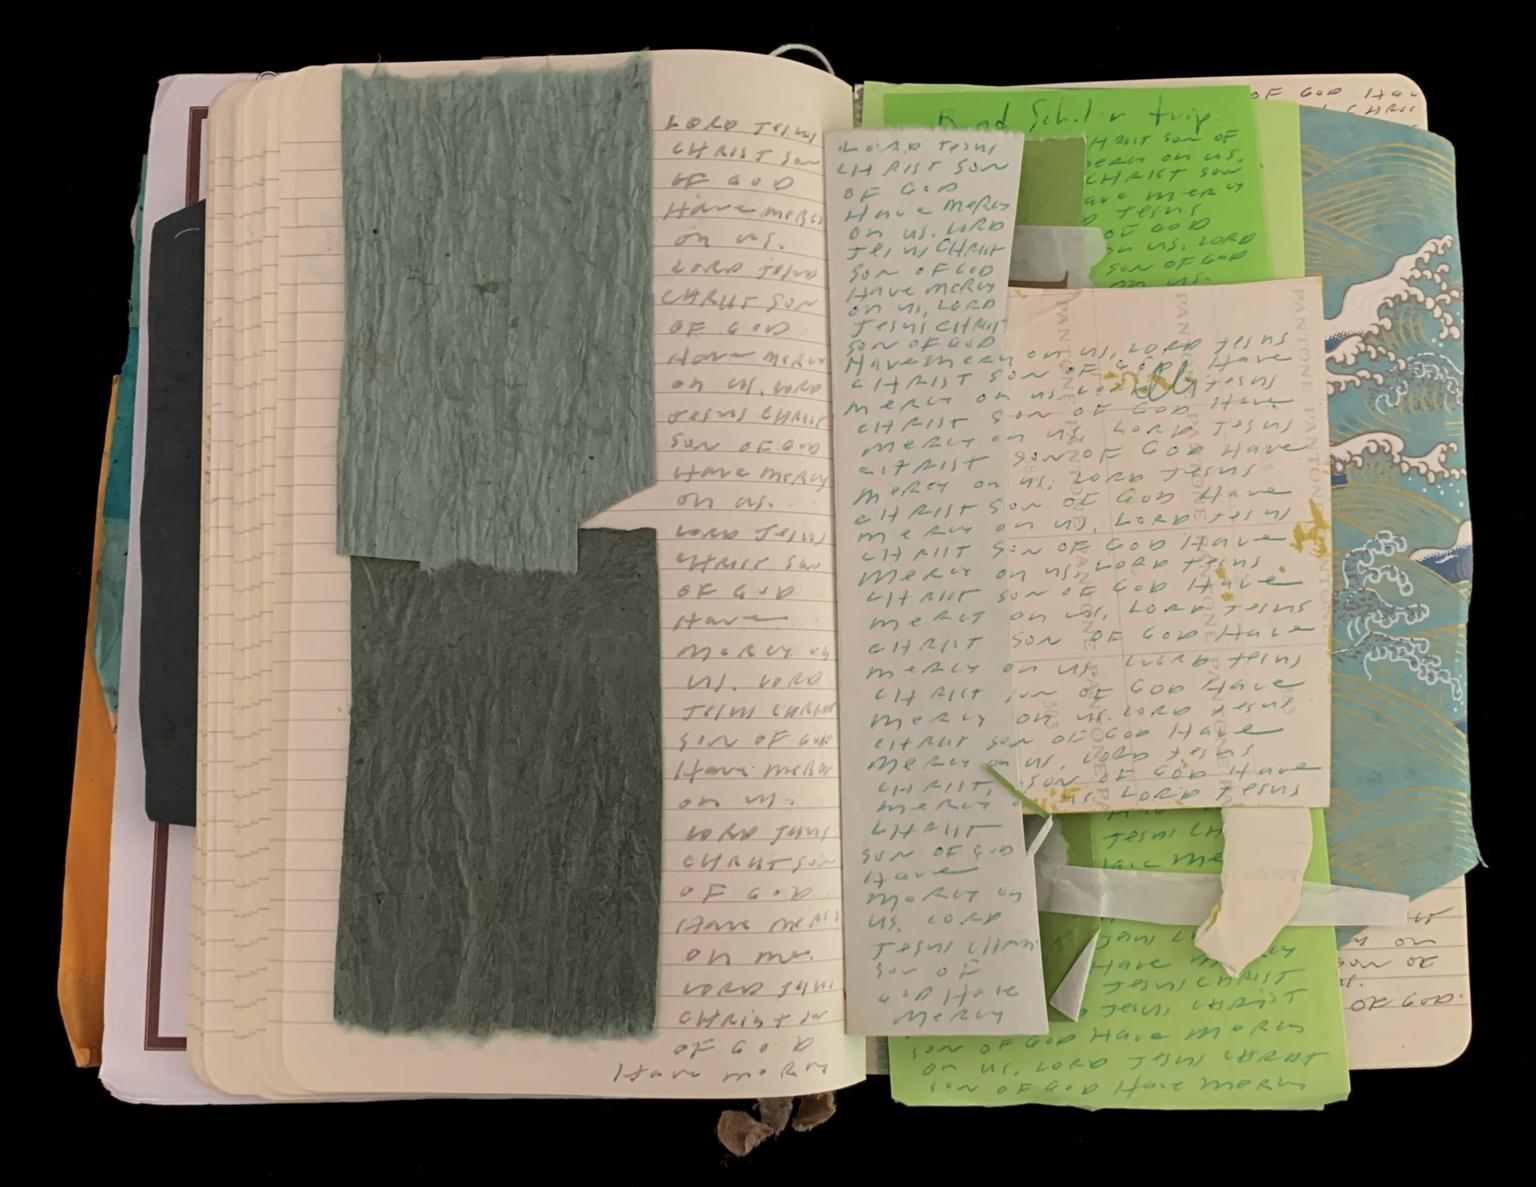 LORD Jesus
CHRIST Son
OF GOD
Have mercy
on us.
LORD Jesus
CHRIST SON
OF GOD
Have mercy
on us. LORD
Jesus CHRIST
SON OF GOD
Have mercy
on us.
LORD Jesus
CHRIST SON
OF GOD
Have
mercy on
us. LORD
Jesus CHRIST
SON OF GOD
Have mercy
on us.
LORD Jesus
CHRIST SON
OF GOD
Have mercy
on me.
LORD Jesus
CHRIST SON
OF GOD
Have mercy
LORD Jesus
CHRIST SON
OF GOD
Have mercy
on us. LORD
Jesus CHRIST
SON OF GOD
Have mercy
on us, LORD
Jesus CHRIST
SON OF GOD
Have mercy on us, LORD Jesus
CHRIST SON OF GOD Have
mercy on us, Jesus
CHRIST SON OF GOD Have
mercy on us, LORD Jesus
CHRIST SON OF GOD Have
mercy on us, LORD Jesus
CHRIST SON OF GOD Have
mercy on us, LORD Jesus
CHRIST SON OF GOD Have
mercy on us, LORD Jesus
CHRIST SON OF GOD Have
mercy on us, LORD Jesus
CHRIST SON OF GOD Have
mercy on us LORD Jesus
CHRIST SON OF GOD Have
mercy on us. LORD Jesus
CHRIST SON OF GOD Have
mercy on us, LORD Jesus
CHRIST, SON OF GOD Have
mercy us, LORD Jesus
CHRIST
SON OF GOD
Have
mercy on
us, LORD
Jesus CHRIST
SON OF
GOD Have
mercy
trip.
CHRIST SON OF
mercy on us,
CHRIST SON
Have mercy
Jesus
OF GOD
on us, LORD
SON OF GOD
on us.
PANTONE PANTONE PANTONE PANTONE
PANTONE PANTONE PANTONE
PANTONE PANTONE PANTONE
Jesus CH
Have me
Have mercy
Jesus CHRIST
Jesus CHRIST
SON OF GOD Have mercy
on us, LORD Jesus CHRIST
SON OF GOD Have mercy
OF GOD Hav
CHRIS
on
SON OF
OF GOD.